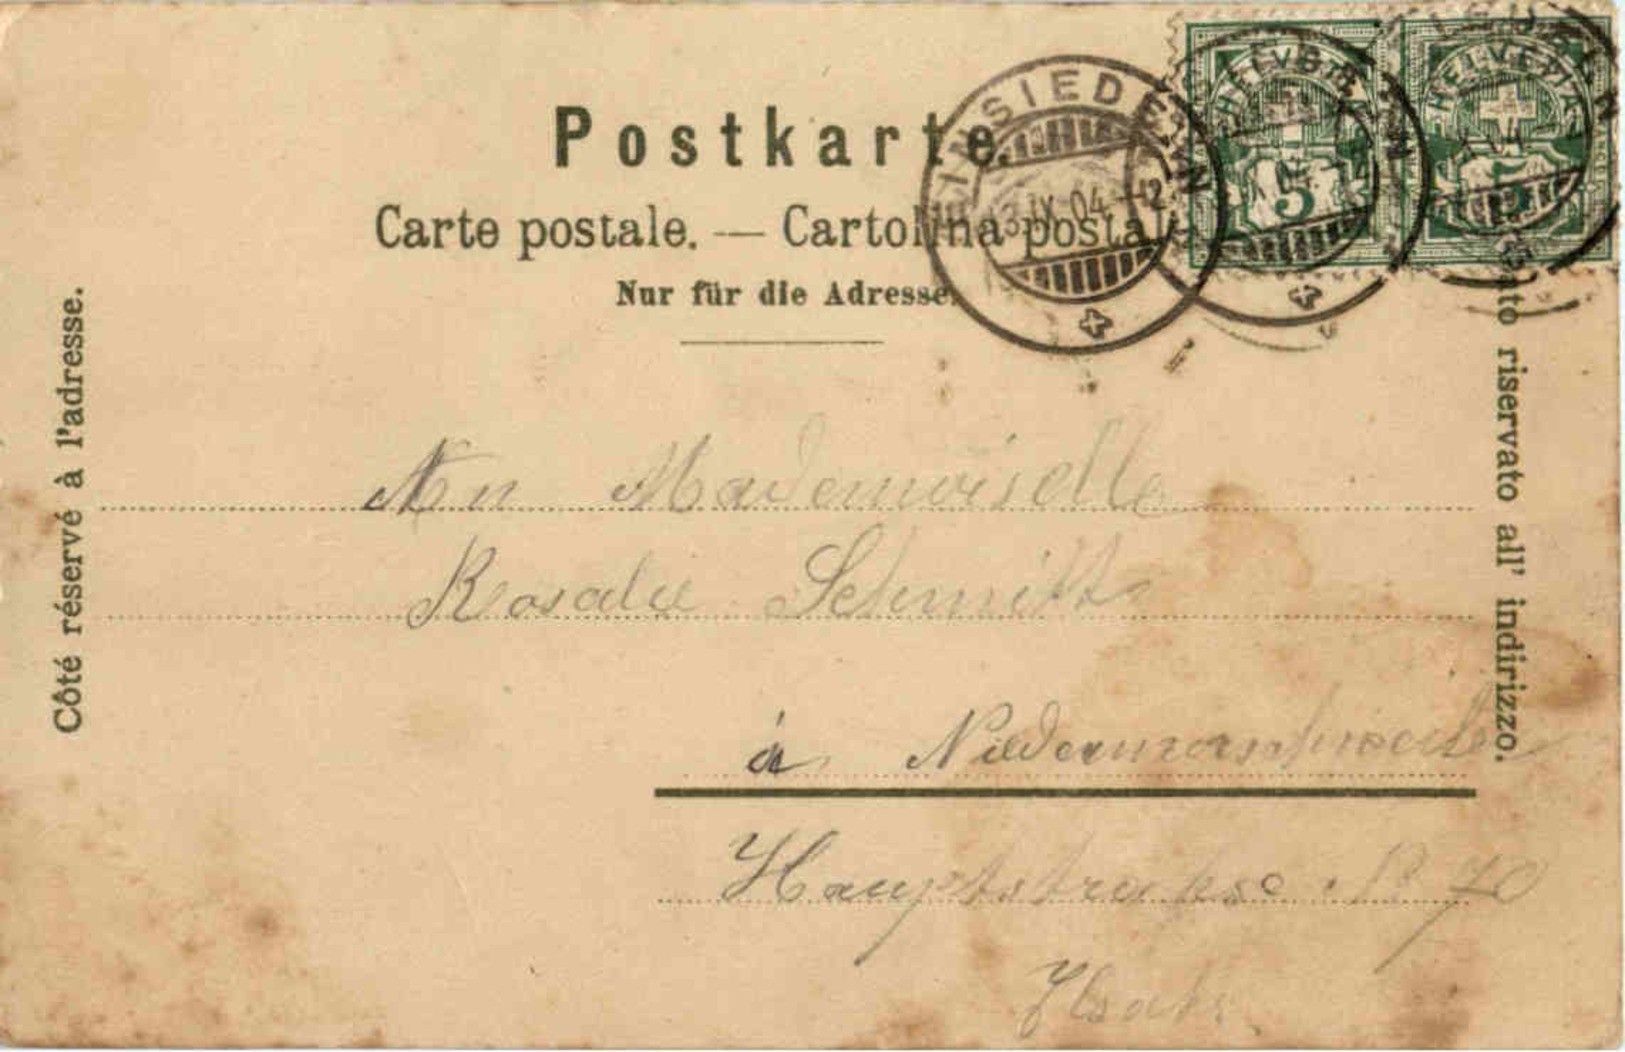 Postkarte.
Carte postale. — Cartolina postale
Nur für die Adresse.
Côté réservé à l'adresse.
riservato all' indirizzo.
EINSIEDELN
13.IX.04.-12
HELVETIA
5
HELVETIA
5
An Mademoiselle
Rosalie Schmitt
à Niedermorschweiler
Hauptstrasse No 70
Elsass